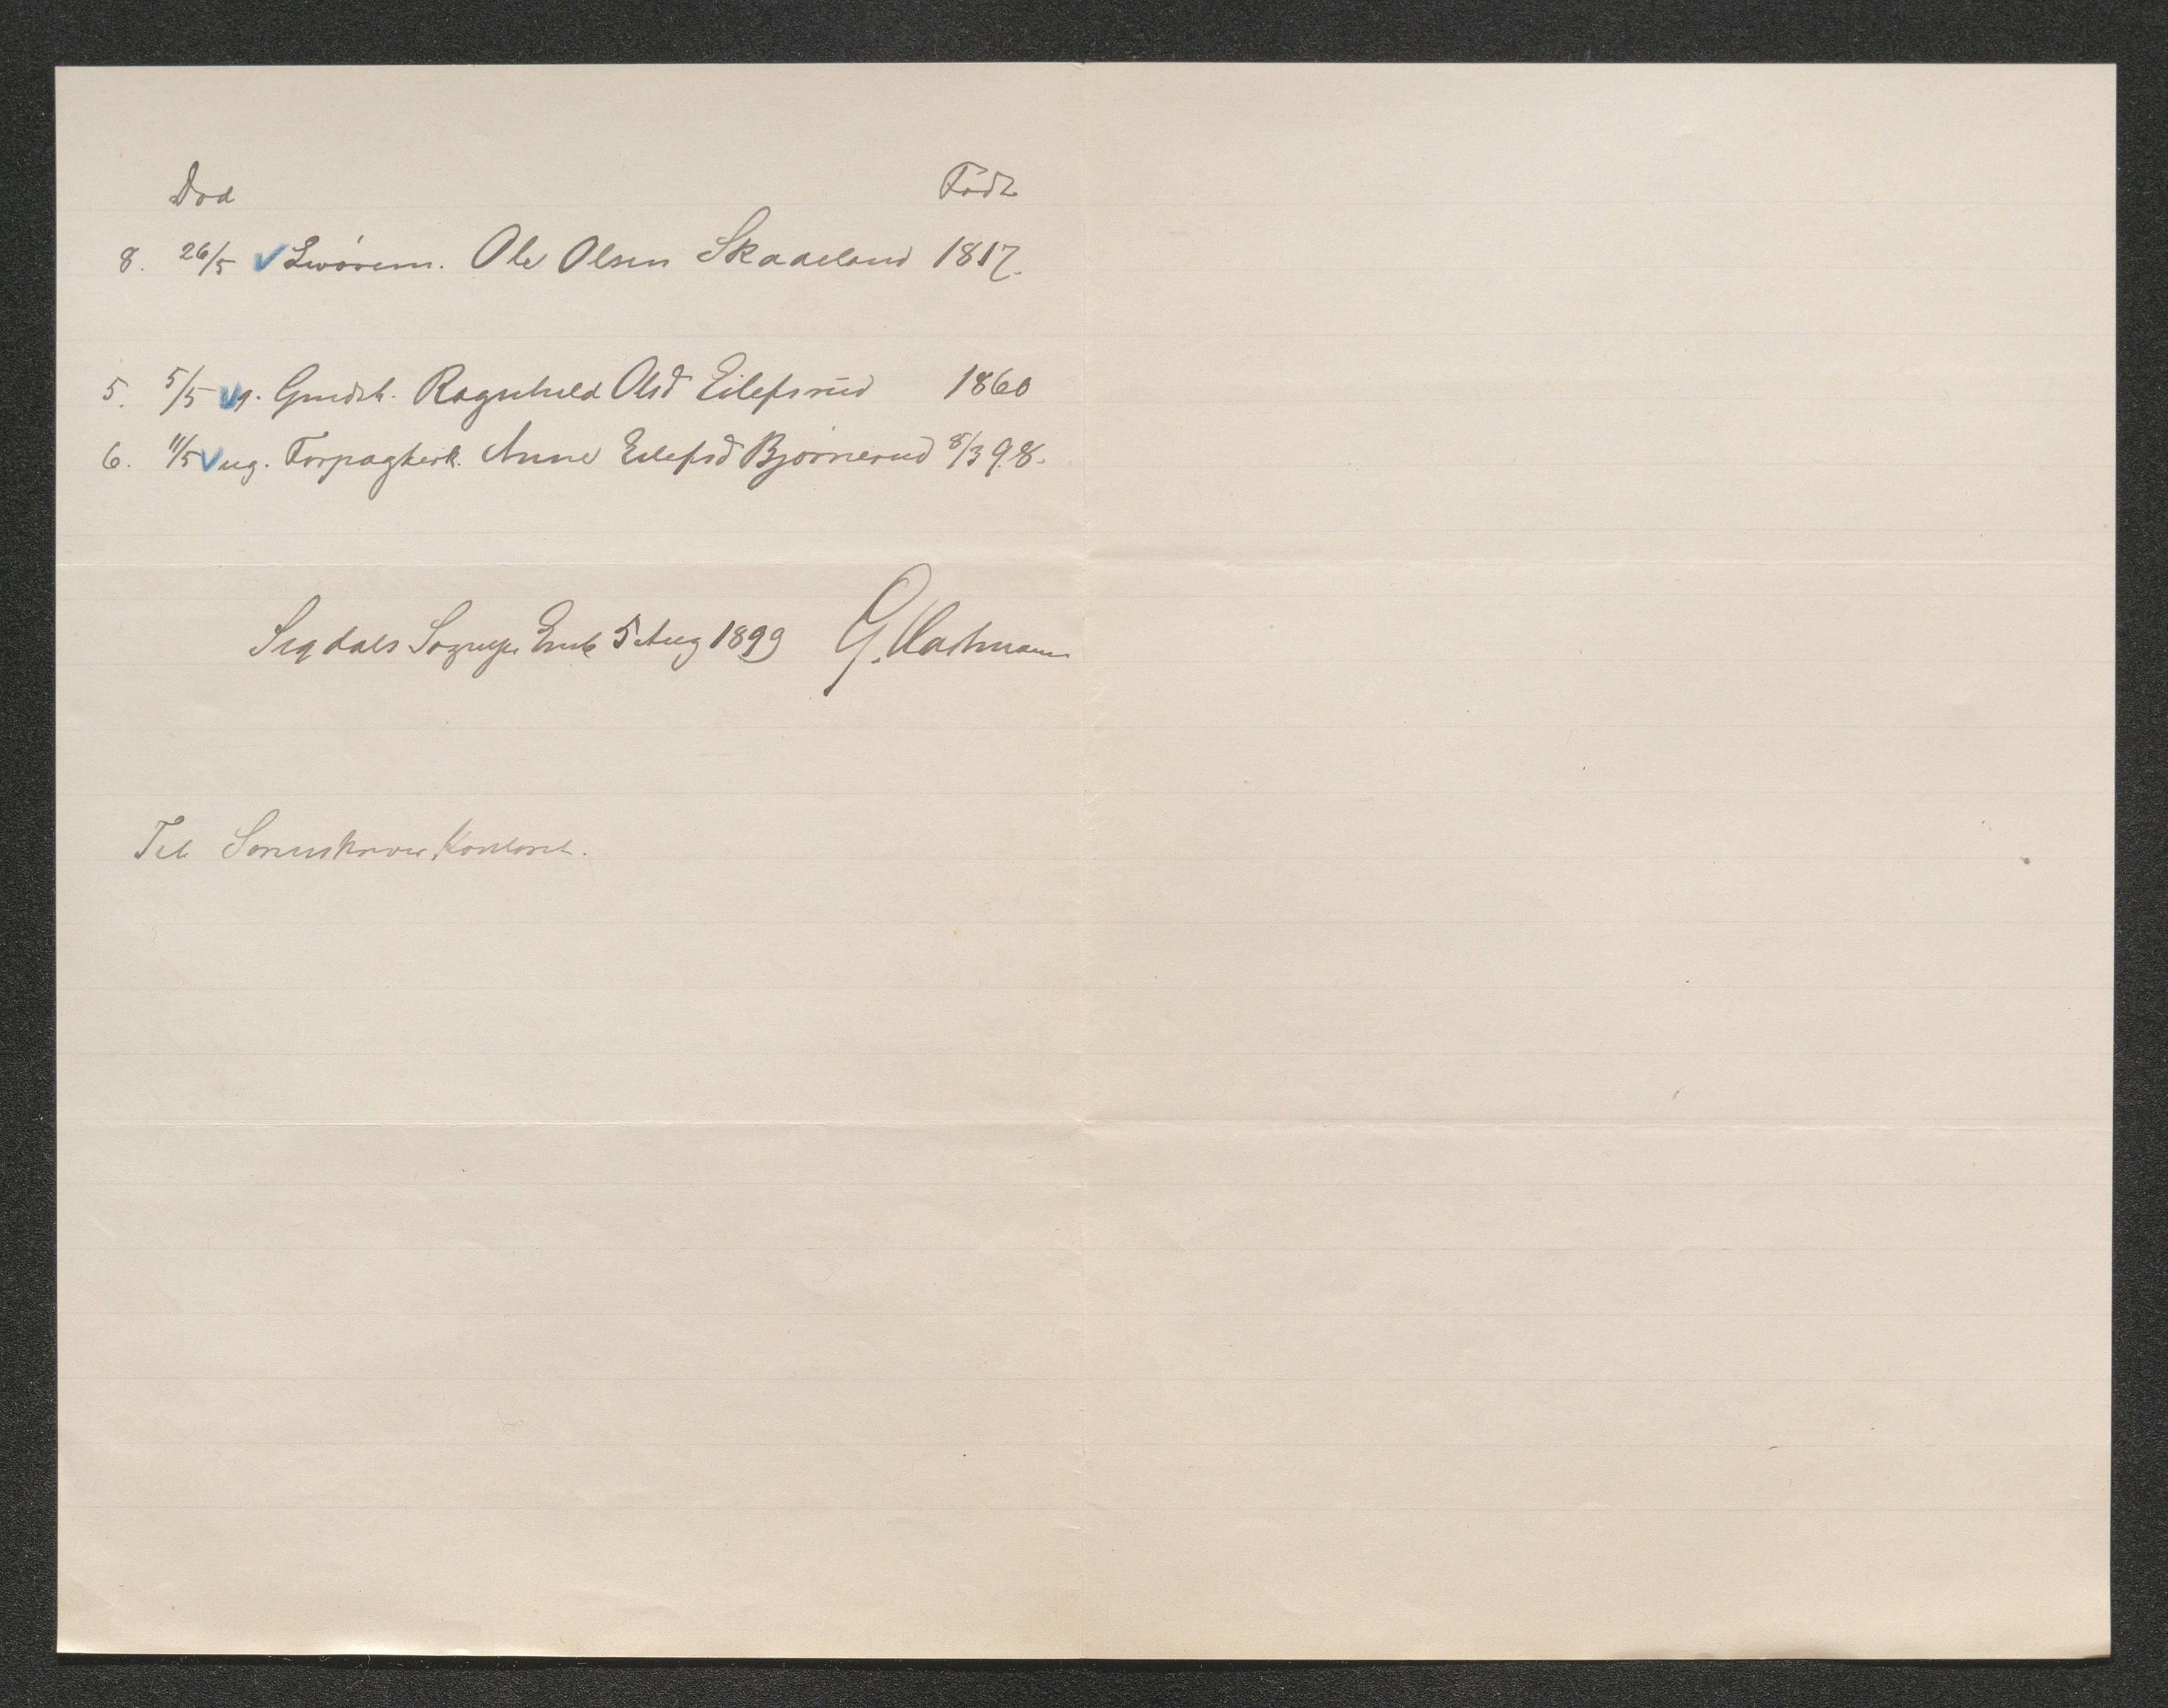 Død Født
8. 26/5 Ole Olsen Skaaeland 1817.
5. 5/5 g. Gmdsk. Ragnhild Olsd Eilefsrud 1860
6. 11/5 ug. Forpagterk. Anne Eilefsd Bjørnerud 8/3 98.
Sigdals Sogneps Emb 5 Aug 1899
Til Sorenskriver Kontoret.